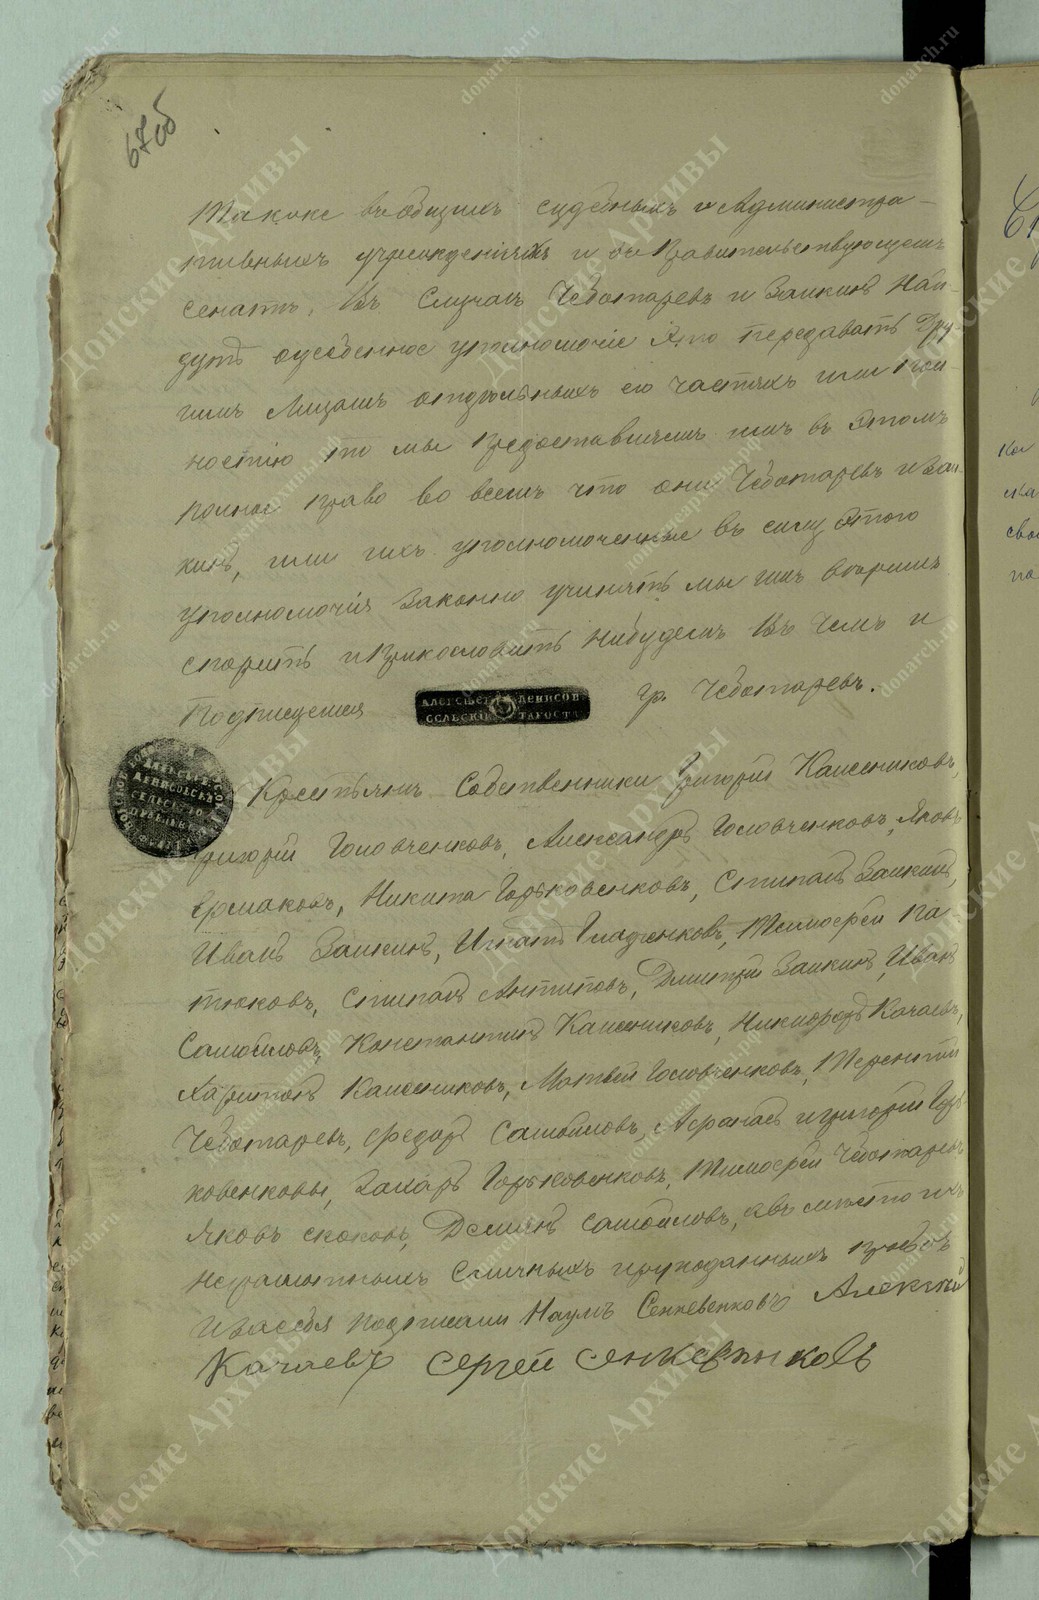 67об
Также въ общихъ судебныхъ и Администра-
тивныхъ учрежденіяхъ и въ Правительствующемъ
сенатъ, Въ Случаѣ Чеботаревъ и Заикинъ Най-
дутъ уполномочіе передавать Дру-
гимъ Лицамъ отдѣльныхъ его частяхъ или пол-
ностію то мы предоставляемъ имъ въ этомъ
полное право во всемъ что они Чеботаревъ и Заи-
кинъ, или ихъ уполномоченные въ силу этого
уполномочія Законно учинятъ мы имъ вѣримъ
спорить и прикословить небудемъ Въ Чемъ и
Подписуемся гр. Чеботаревъ.
АЛЕКСѢЕ ДЕНИСОВ
СЕЛЬСКІЙ СТАРОСТА
Крестьяне Собственники Григорій Калесниковъ,
Григорій Головченковъ, Александръ Головченковъ, Яковъ
Ермаковъ, Никита Горьковенковъ, Степанъ Заикинъ,
Иванъ Заикинъ, Игнатъ Гладченковъ, Тимофей Па-
тюковъ, Степанъ Антиповъ, Дмитрій Заикинъ, Иванъ
Самойловъ, Константинъ Калесниковъ, Никифоръ Качаевъ,
Харитонъ Калесниковъ, Матвѣй Головченковъ, Терентій
Чеботаревъ, Федоръ Самойловъ, Афанасъ и Григорій Горь-
ковенковы, Захаръ Горьковенковъ, Тимофей Чеботаревъ
Яковъ скоковъ, Демянъ Самойловъ, а въ место ихъ
Неграмотныхъ Личныхъ и рукоданныхъ прозбъ
и за себя Подписали Наумъ Сенкевенковъ Алексѣй
Качаевъ Сергей Сенкевенковъ